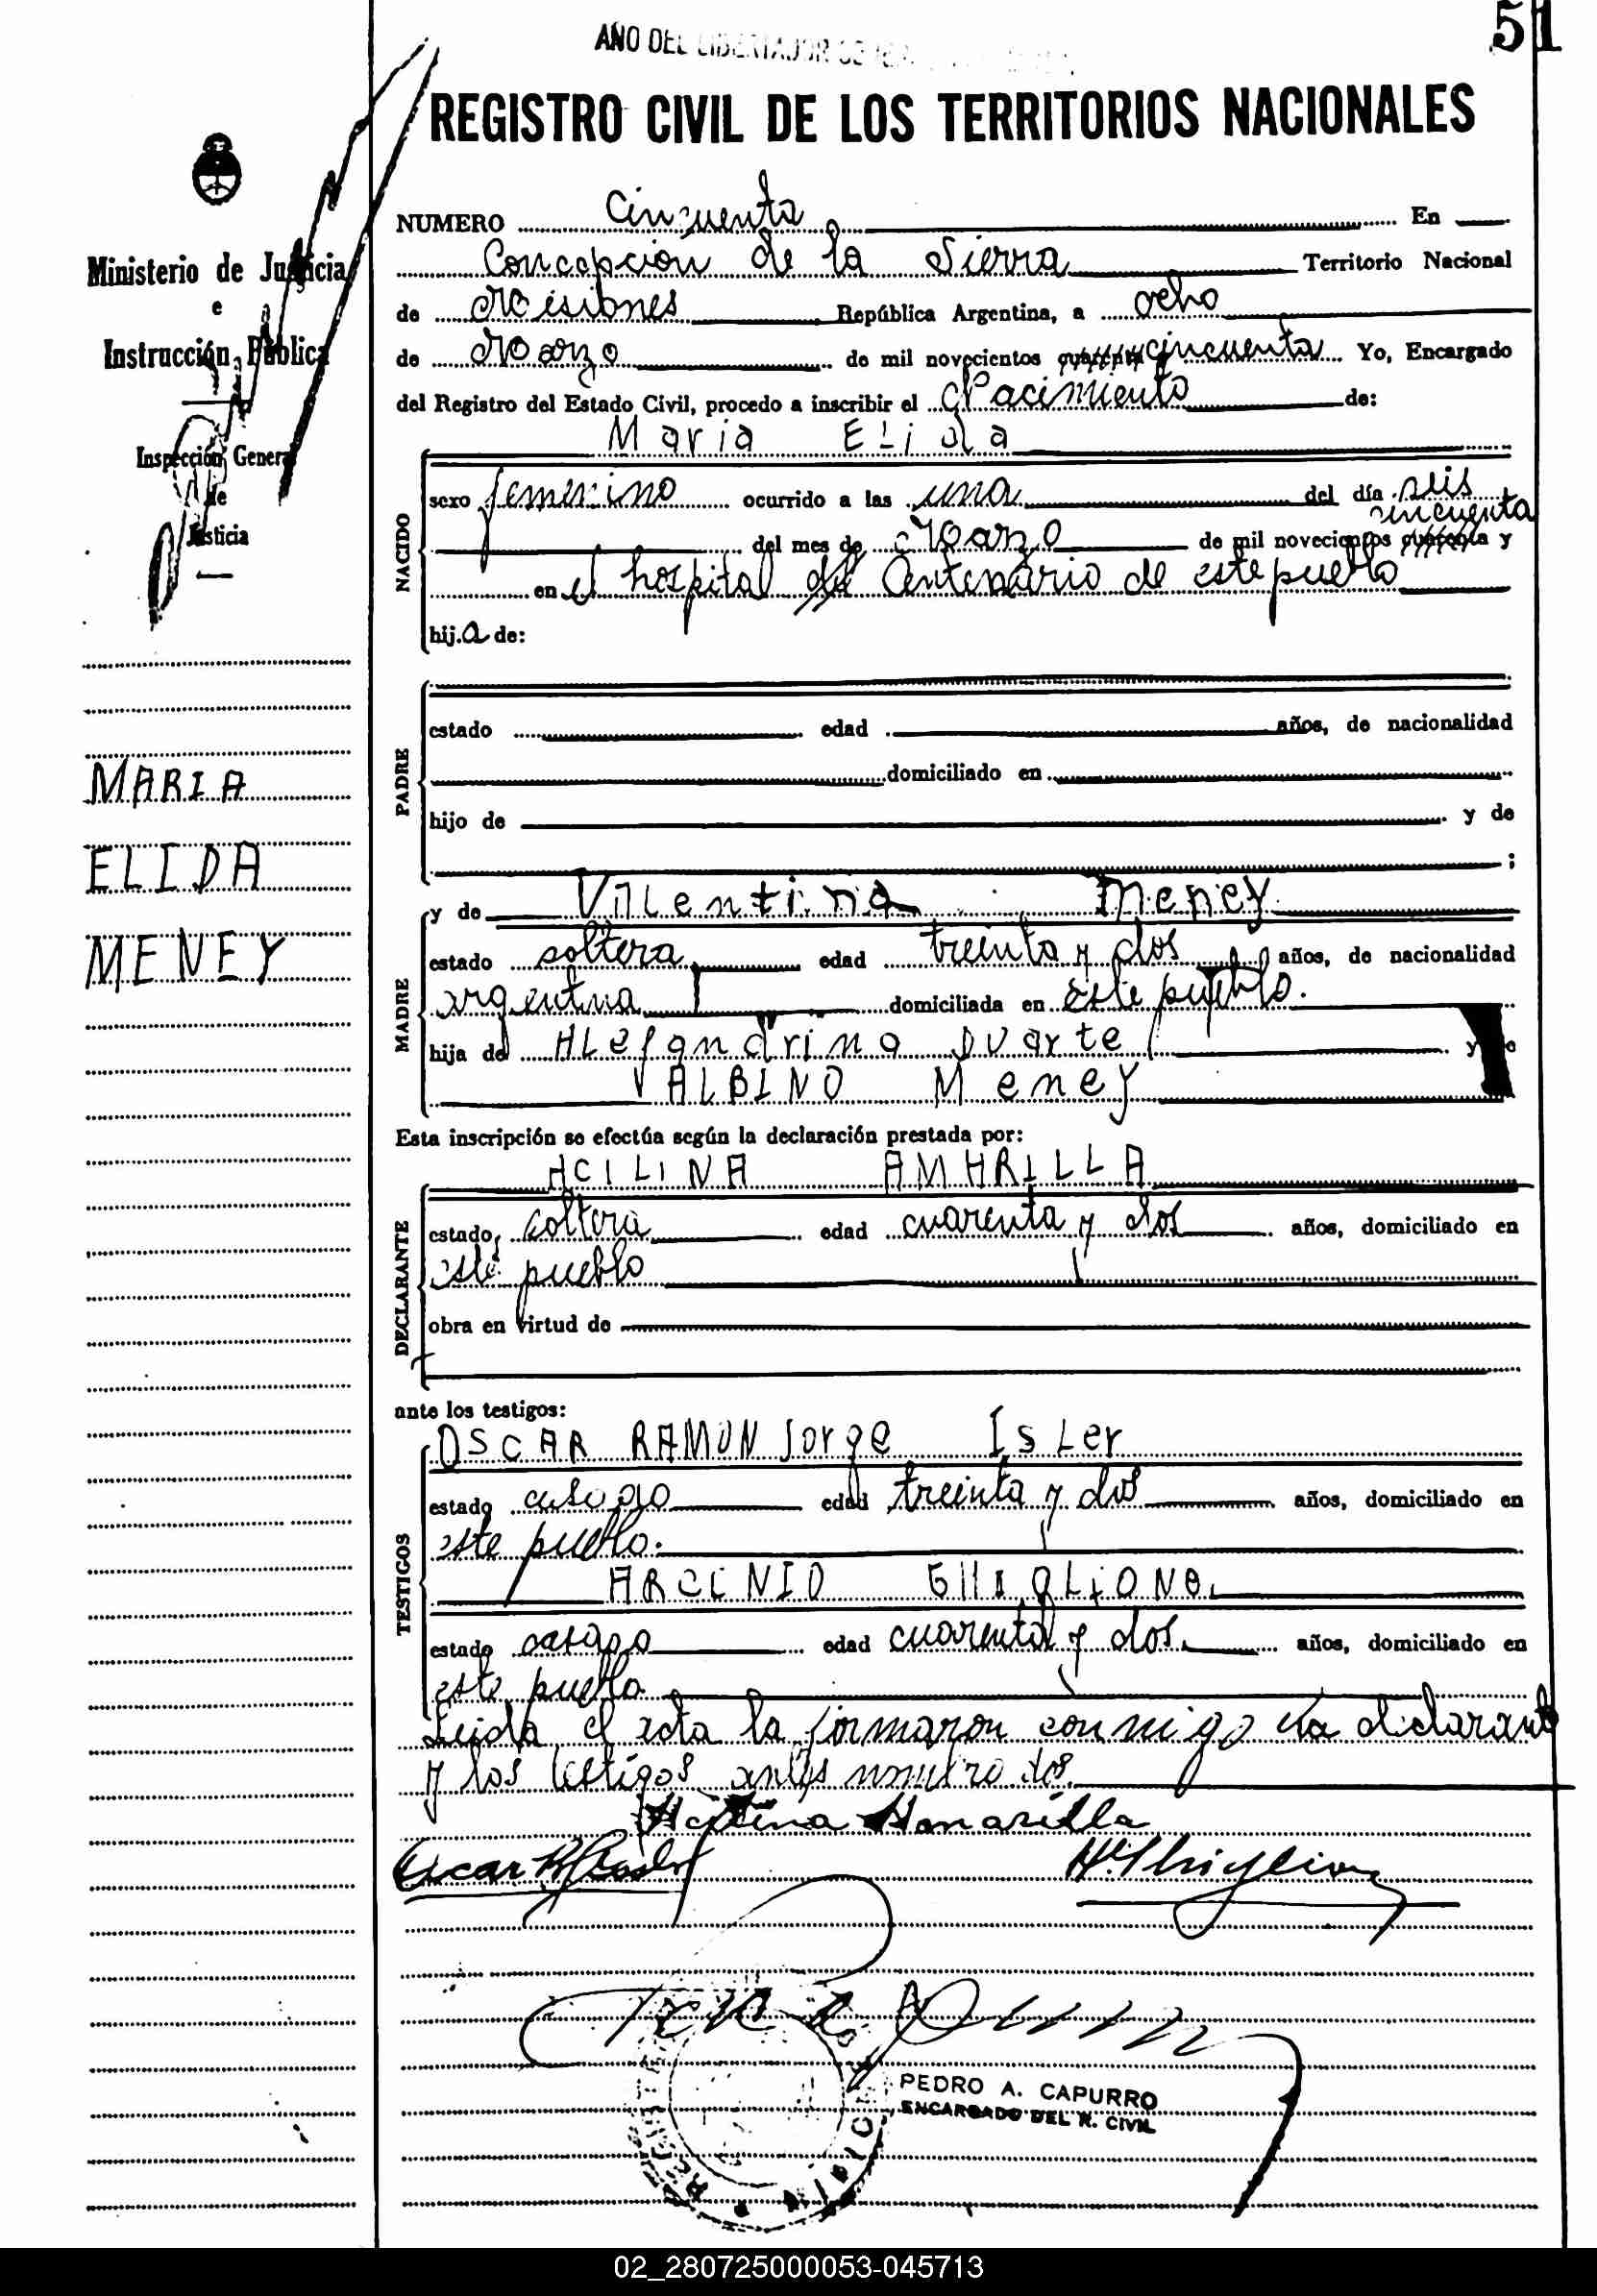 51
AÑO DEL LIBERTADOR
REGISTRO CIVIL DE LOS TERRITORIOS NACIONALES
NUMERO Cincuenta En
Concepción de la Sierra Territorio Nacional
de Misiones República Argentina, a ocho
de Marzo de mil novecientos cuarenta cincuenta Yo, Encargado
del Registro del Estado Civil, procedo a inscribir el Nacimiento de:
Maria Elida
NACIDO
sexo femenino ocurrido a las una del día seis
cincuenta
del mes de Marzo de mil novecientos cuarenta y
en el hospital del Centenario de este pueblo
hija de:
PADRE
estado edad años, de nacionalidad
domiciliado en
hijo de y de
;
MADRE
y de Valentina Meney
estado soltera edad treinta y dos años, de nacionalidad
argentina domiciliada en este pueblo.
hija de Alejandrina Duarte y de
ALBINO Meney
Esta inscripción se efectúa según la declaración prestada por:
ACILINA AMARILLA
DECLARANTE
estado soltera edad cuarenta y dos años, domiciliado en
este pueblo
obra en virtud de
ante los testigos:
TESTIGOS
OSCAR RAMON Jorge Isler
estado casado edad treinta y dos años, domiciliado en
este pueblo.
ARCENIO
estado casado edad cuarenta y dos años, domiciliado en
este pueblo
Leida el acta la firmaron conmigo la declarante
y los testigos antes nombrados.
Acilina Amarilla
Oscar R J Isler
PEDRO A. CAPURRO
ENCARGADO DEL R. CIVIL
Ministerio de Justicia
e
Instrucción Pública
Inspección General
de
Justicia
MARIA
ELIDA
MENEY
02_280725000053-045713